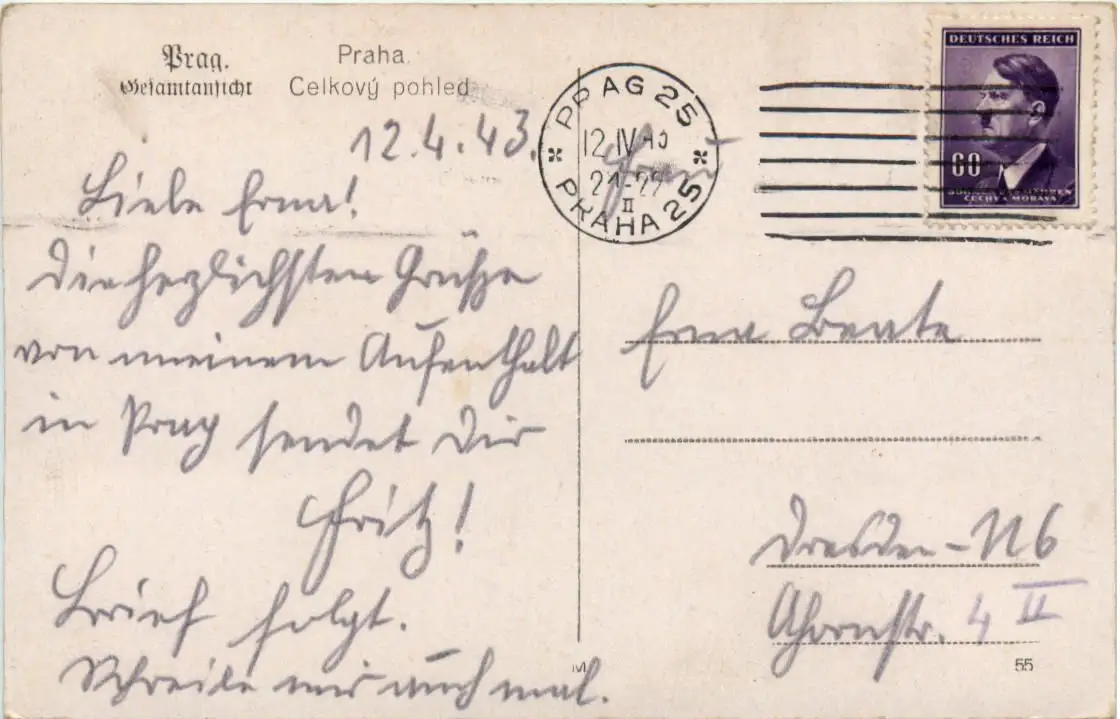 Prag.
Gesamtansicht
Praha.
Celkový pohled
12.4.43.
Liebe Erna!
Die herzlichsten Grüsse
von meinem Aufenthalt
in Prag sendet Dir
Fritz!
Brief folgt.
Schreibe mir auch mal.
PRAG 25
12 IV 43
21-22
II
PRAHA 25
DEUTSCHES REICH
60
BÖHMEN U. MÄHREN
ČECHY A MORAVA
Frau
Erna Beate
Dresden-N6
Ahornstr. 4 II
M
55